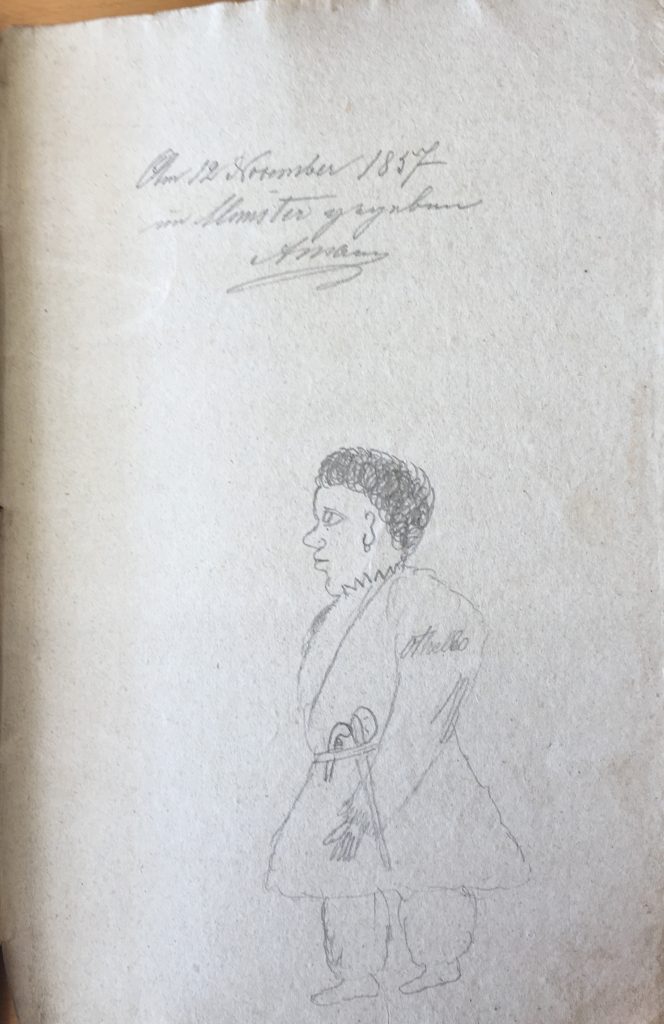 Am 12 November 1857
in Münster gegeben
Othello